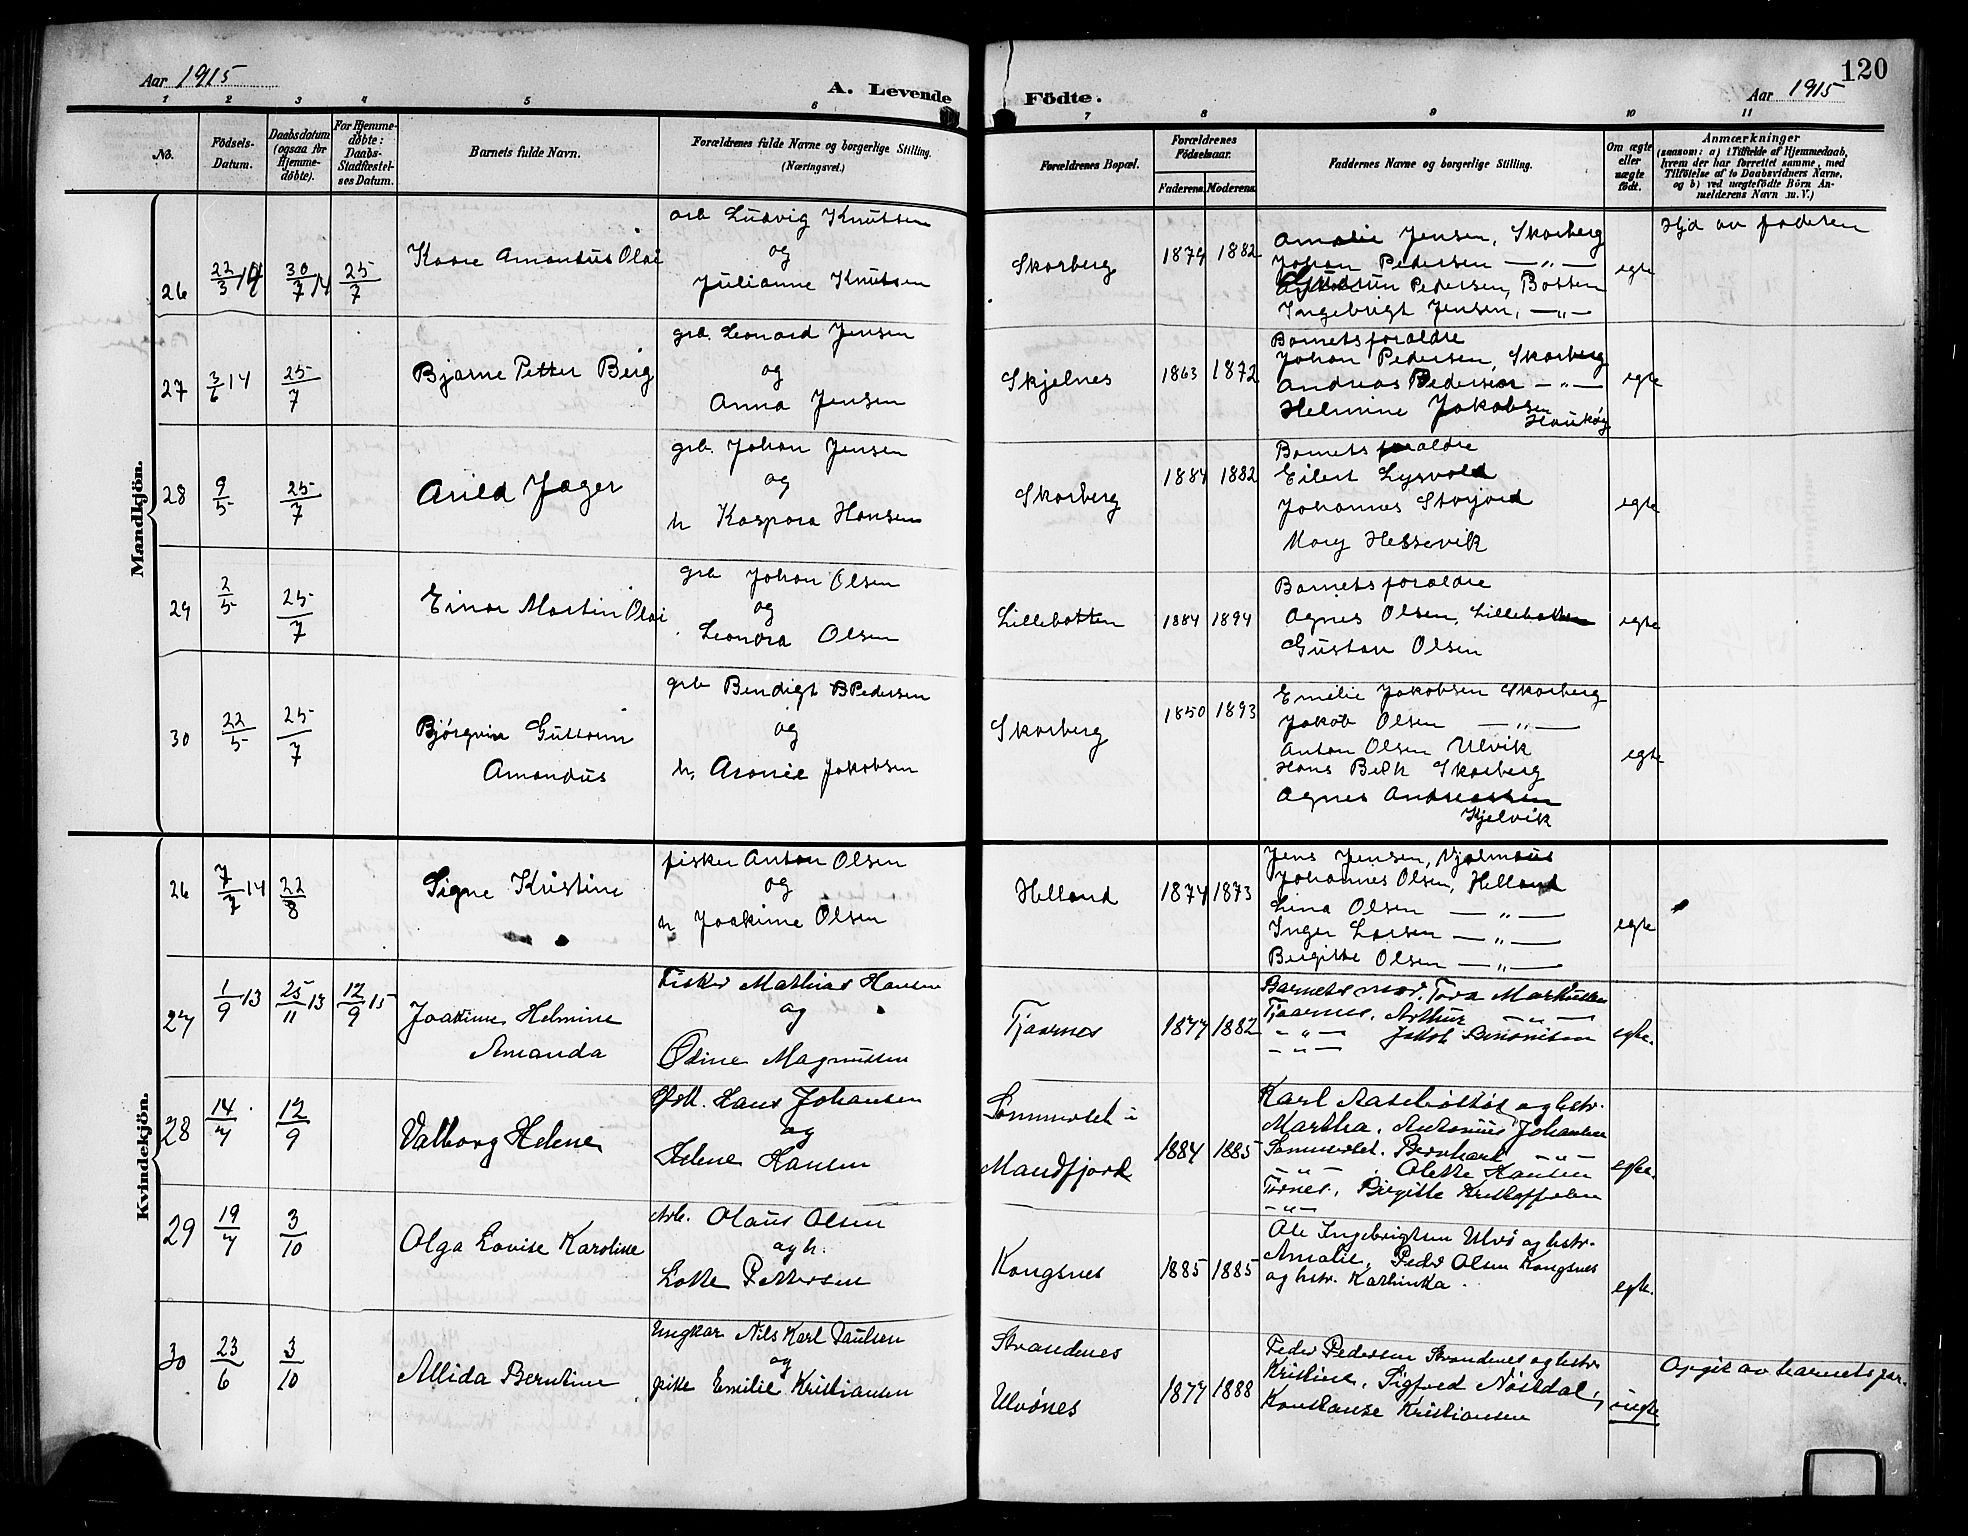 Aar 1915
A. Levende Födte.
120
Aar 1915
1 2 3 4 5 6 7 8 9 10 11
No.
Födsels-
Datum.
Daabsdatum
(ogsaa för
Hjemme-
döbte).
For Hjemme-
döbte:
Daabs-
Stadfæstel-
ses Datum.
Barnets fulde Navn.
Forældrenes fulde Navne og borgerlige Stilling.
(Næringsvei.)
Forældrenes Bopæl.
Forældrenes
Födselsaar.
Faderens. Moderens.
Faddernes Navne og borgerlige Stilling.
Om ægte
eller
uægte
födt.
Anmærkninger
(saasom: a) i Tilfælde af Hjemmedaab,
hvem der har forrettet samme, med
Tilföielse af to Daabsvidners Navne,
og b) ved uægtefödte Börn An-
melderens Navn m. V.)
Mandkjön.
26 22/3 14 30/7 14 25/7 Kaare Amandus Olai
arb Ludvig Knutsen
og
Julianne Knutsen
Skarberg 1874 1882
Amalie Jensen, Skarberg
Johan Pedersen —„—
Gudrun Pedersen, Botten
Ingebrigt Jensen, —„—
egte
Hjd av faderen
27 3/6 14 25/7 Bjarne Petter Berg
grb. Leonard Jensen
og
Anna Jensen
Skjelnes 1863 1872
Barnets foraldre
Johan Pedersen, Skarberg
Andreas Pedersen —„—
Helmine Jakobsen
Haukøy
egte
28 9/5 25/7 Arild Jæger
grb. Johan Jensen
og
h Kaspara Hansen
Skarberg 1884 1882
Barnets foraldre
Eilert Lysvold
Johannes Storjord
Mary Hessevik
egte
29 2/5 25/7 Einar Martin Olai
grb Johan Olsen
og
Leonora Olsen
Lillebotten 1884 1894
Barnets foraldre
Agnes Olsen, Lillebotten
Gustav Olsen
egte
30 22/5 25/7 Bjørgvin Guttorm
Amandus
grb Bendigt B Pedersen
og
h. Aronie Jakobsen
Skarberg 1850 1893
Emilie Jakobsen Skarberg
Jakob Olsen —„—
Anton Olsen Ulvik
Hans Skarberg
Agnes Andreassen
Kjelvik
egte
Kvindekjön.
26 7/7 14 22/8 Signe Kristine
fisker Anton Olsen
og
h Joakime Olsen
Helland 1874 1873
Jens Jensen,
Johannes Olsen, Helland
Lina Olsen —„—
Inger Larsen —„—
Birgitte Olsen —„—
egte
27 1/9 13 25/11 13 12/9 15 Joakime Helmine
Amanda
Fisker Mathias Hansen
og
Odine Magnussen
Tjaarnes 1877 1882
Barnets mor. Tora Markussen
Tjaarnes. Arthur —„—
—„— Jakob Benonisen
—„—
egte.
28 14/7 12/9 Valborg Helene
Hans Johansen
og
Helene Hansen
Sommerset i
Mandfjord 1884 1885
Karl og hstr.
Martha. Antonius Johansen
Sommerset. Bernhard —„—
—„—. Olette Hansen
Tornes. Birgitte Kristoffersen
—„—
egte.
29 19/7 3/10 Olga Lovise Karoline
Arb. Olaus Olsen
og h.
Lotte Pettersen
Kongsnes 1885 1885
Ole Ingebrigtsen Ulvö og hstr.
Amalie, Peder Olsen Kongsnes
og hstr. Kathinka.
egte.
30 23/6 3/10 Allida Berntine
Ungkar Nils Karl Paulsen
og
pike Emilie Kristiansen
Strandenes
Ulvönes 1877 1888
Peder Pedersen Strandenes og hstr.
Kristine. Sigfred Nöstdal,
Konstanse Kristiansen
uegte
Opgit av barnets far.